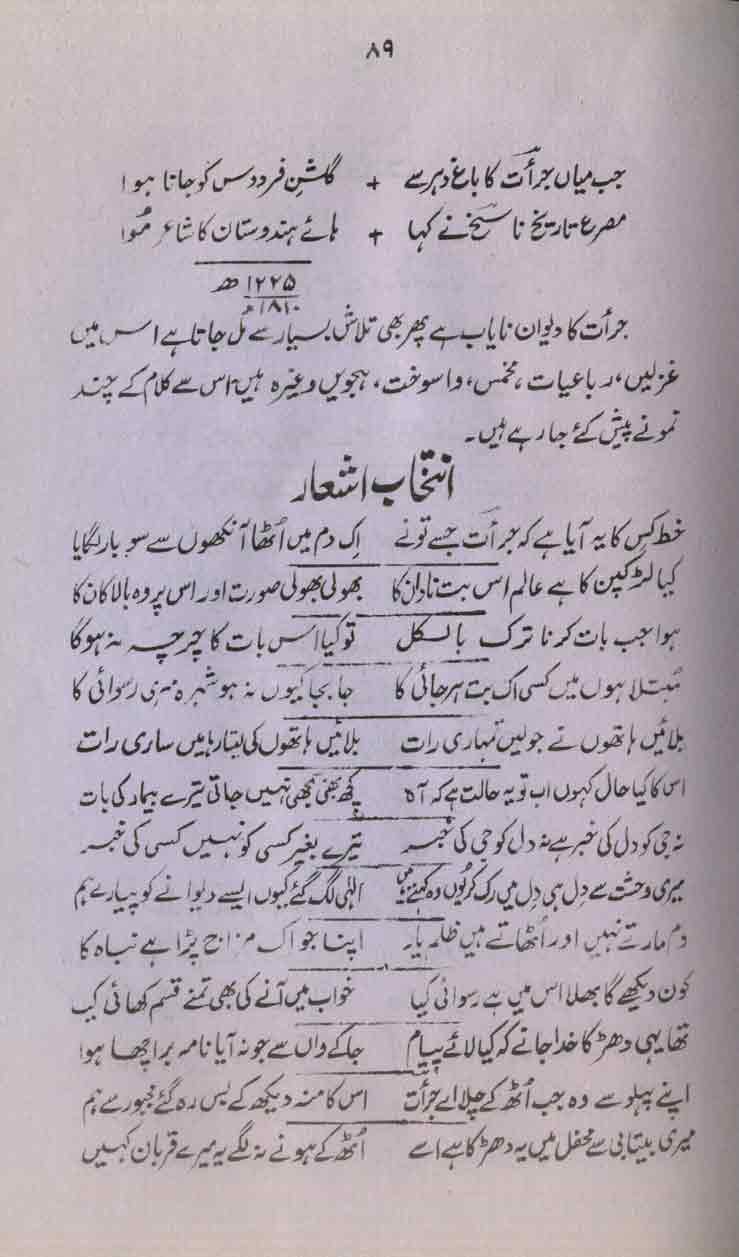 ۸۹
جب میاں جرأت کا باغ دہر سے + گلشنِ فردوس کو جانا ہوا
مصرع تاریخ ناسخ نے کہا + ہائے ہندوستان کا شاعر مُوا
۱۲۲۵ھ
۱۸۱۰م
جرأت کا دیوان نایاب ہے پھر بھی تلاش بسیار سے مل جاتا ہے اس میں
غزلیں، رباعیات، مخمس، واسوخت، ہجویں وغیرہ ہیں اس سے کلام کے چند
نمونے پیش کئے جا رہے ہیں۔
انتخاب اشعار
خط کس کا یہ آیا ہے کہ جرأت جسے تو نے اِک دم میں اُٹھا آنکھوں سے سو بار لگایا
کیا لڑکپن کا ہے عالم اس بت نادان کا بھولی بھولی صورت اور اس پر وہ بالا کان کا
ہوا جب بات کرنا ترک بالکل تو کیا اس بات کا چرچہ نہ ہوگا
مُبتلا ہوں میں کسی اک بت ہرجائی کا جا بجا کیوں نہ ہو شہرہ مری رسوائی کا
بلائیں ہاتھوں نے جو لیں تمہاری رات بلائیں ہاتھوں کی لیتا رہا میں ساری رات
اس کا کیا حال کہوں اب تو یہ حالت ہے کہ آہ کچھ بھی سمجھی نہیں جاتی تیرے بیمار کی بات
نہ جی کو دل کی خبر ہے نہ دل کو جی کی خبر تیرے بغیر کسی کو نہیں کسی کی خبر
میری وحشت سے دل ہی دل میں رک کر یوں وہ کہتے ہیں الٰہی لگ گئے کیوں ایسے دیوانے کو پیارے ہم
دم مارتے نہیں اور اُٹھاتے ہیں ظلم یار اپنا جو اک مزاج پڑا ہے نباہ کا
کون دیکھے گا بھلا اس میں ہے رسوائی کیا خواب میں آنے کی بھی تمنے قسم کھائی کیا
تھا یہی دھڑکا خدا جانے کہ کیا لائے پیام جا کے واں سے جو نہ آیا نامہ بر اچھا ہوا
اپنے پہلو سے وہ جب اُٹھ کے چلا اے جرأت اس کا منہ دیکھ کے بس رہ گئے مجبور سے ہم
میری بیتابی سے محفل میں یہ دھڑکا ہے اسے اُٹھ کے ہونے نہ لگے یہ میرے قربان کہیں